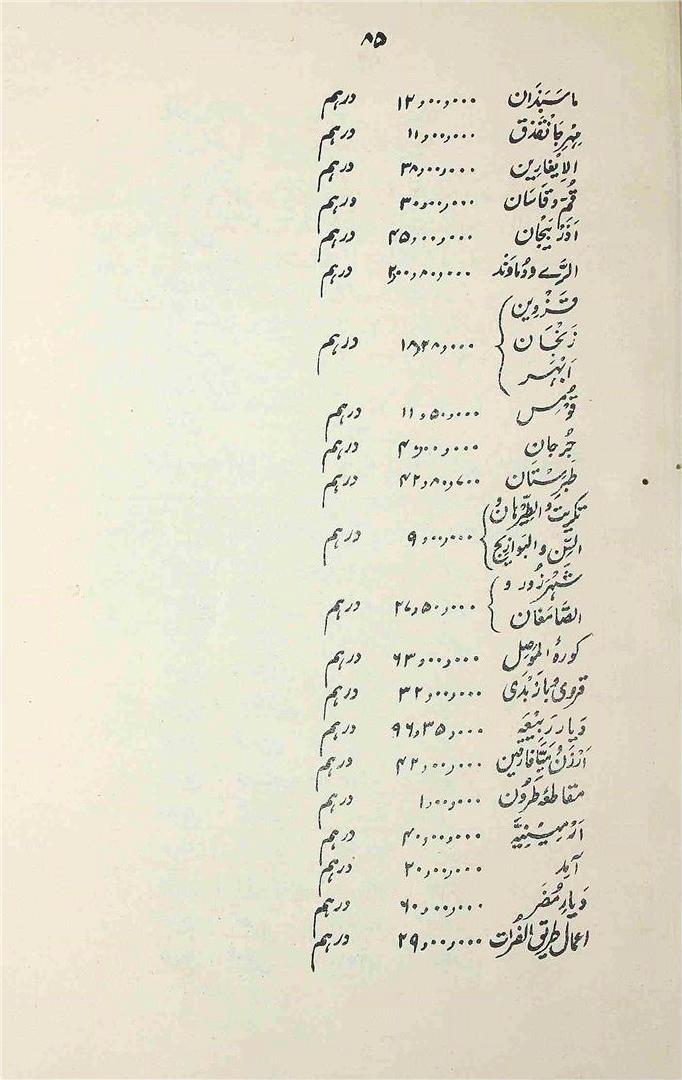 ۸۵
ماسَبَذَان ۱۲,۰۰,۰۰۰ درہم
مِہرِجَانْقَذَق ۱۱,۰۰,۰۰۰ درہم
الاِیْغَارِین ۳۸,۰۰,۰۰۰ درہم
قُمّ و قَاسَان ۳۰,۰۰,۰۰۰ درہم
اَذَرْبَیْجَان ۴۵,۰۰,۰۰۰ درہم
الرَّے و دُمَاوَنْد ۲,۰۰,۸۰,۰۰۰ درہم
قَزْوِین
زَنْجَان ۱۸,۲۸,۰۰۰ درہم
اَبْہَر
قُوْمِس ۱۱,۵۰,۰۰۰ درہم
جُرجَان ۴۰,۰۰,۰۰۰ درہم
طَبَرِسْتَان ۴۲,۸۰,۷۰۰ درہم
تَکْرِیت و الطِّیْرہَان و
السِّن و البَوازِیج ۹,۰۰,۰۰۰ درہم
شَہْرَزُور و
الصَّامَغَان ۲۷,۵۰,۰۰۰ درہم
کورۂ المَوصِل ۶۳,۰۰,۰۰۰ درہم
قَروی و بَازَبْدَی ۳۲,۰۰,۰۰۰ درہم
دِیَار رَبِیْعَہ ۹۶,۳۵,۰۰۰ درہم
اَرْزَن و مَیَّافَارِقِین ۴۲,۰۰,۰۰۰ درہم
مقاطعۂ طَرُون ۱,۰۰,۰۰۰ درہم
اَرْمِیْنِیَّہ ۴۰,۰۰,۰۰۰ درہم
آمِد ۲۰,۰۰,۰۰۰ درہم
دِیَار مُضَر ۶۰,۰۰,۰۰۰ درہم
اعمال طریق الفُرات ۲۹,۰۰,۰۰۰ درہم